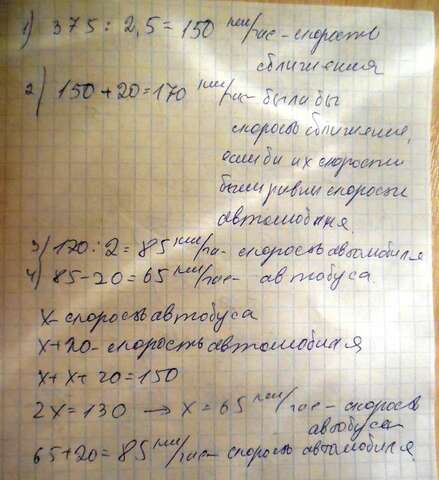 1) 375 : 2,5 = 150 км/час - скорость
сближения
2) 150 + 20 = 170 км/час - была бы
скорость сближения,
если би их скорости
были равны скорости
автомобиля.
3) 170 : 2 = 85 км/час - скорость автомобиля
4) 85 - 20 = 65 км/час - автобуса
x - скорость автобуса
x + 20 - скорость автомобиля
x + x + 20 = 150
2x = 130 → x = 65 км/час - скорость
автобуса
65 + 20 = 85 км/час - скорость автомобиля